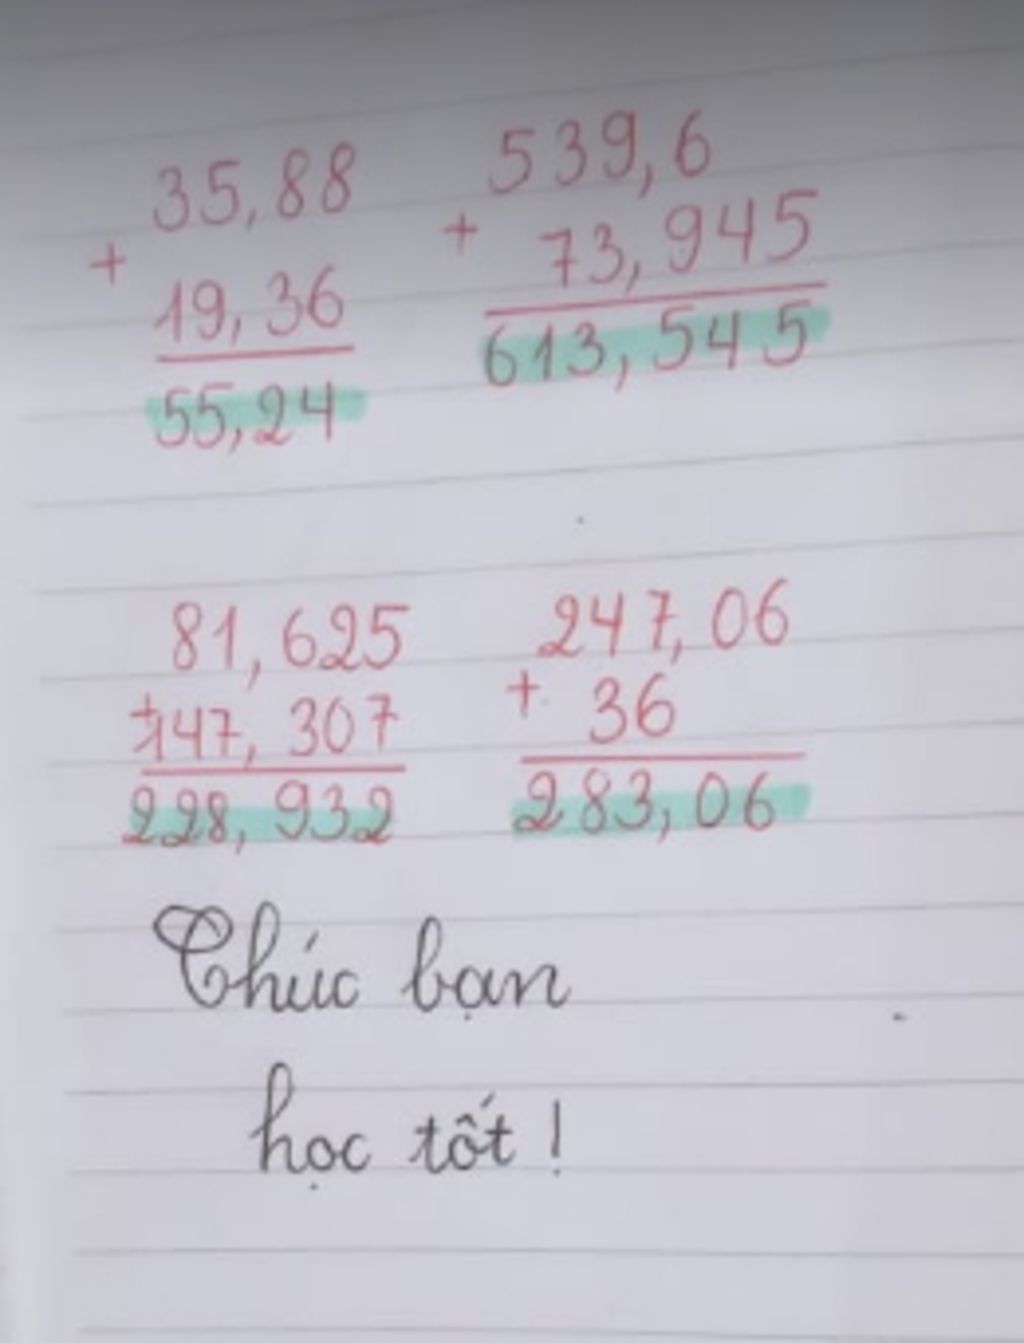 35,88
+
19,36
55,24
539,6
+
73,945
613,545
81,625
+
147,307
228,932
247,06
+ 36
283,06
Chúc bạn
học tốt!